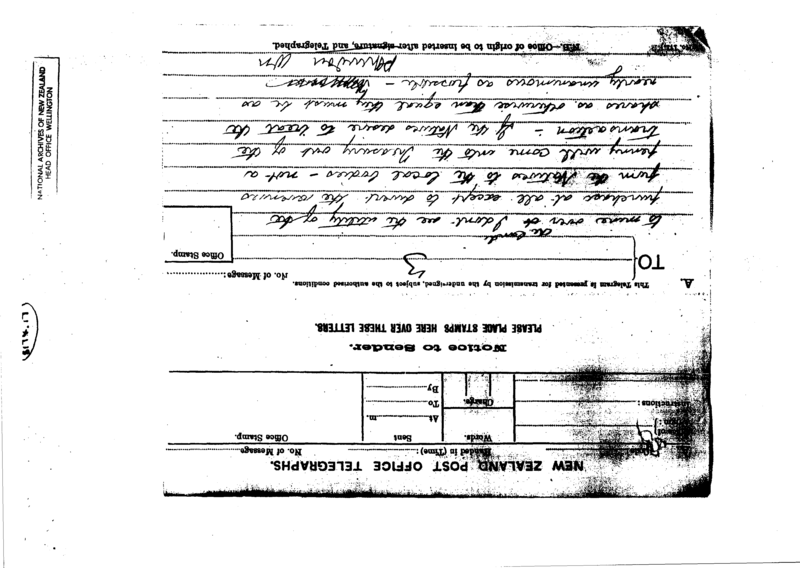 NEW ZEALAND POST OFFICE TELEGRAPHS.
Handed in (Time) :
No. of Message.
Words.
Sent
Office Stamp.
At m.
Charge.
To
By
Instructions :
Notice to Sender.
PLEASE PLACE STAMPS HERE OVER THESE LETTERS.
A.
This Telegram is presented for transmission by the undersigned, subject to the authorised conditions.
No. of Message:
TO
3
Office Stamp.
the land
to mine over it I dont see the utility of the
purchase at all except to divert the revenues
from the Natives to the local bodies - not a
penny will come into the Treasury out of the
transaction - If the Natives desire to treat the
shares as otherwise than equal they must be as
nearly unanimous as possible -
N.B.—Office of origin to be inserted after signature, and Telegraphed.
NATIONAL ARCHIVES OF NEW ZEALAND
HEAD OFFICE WELLINGTON